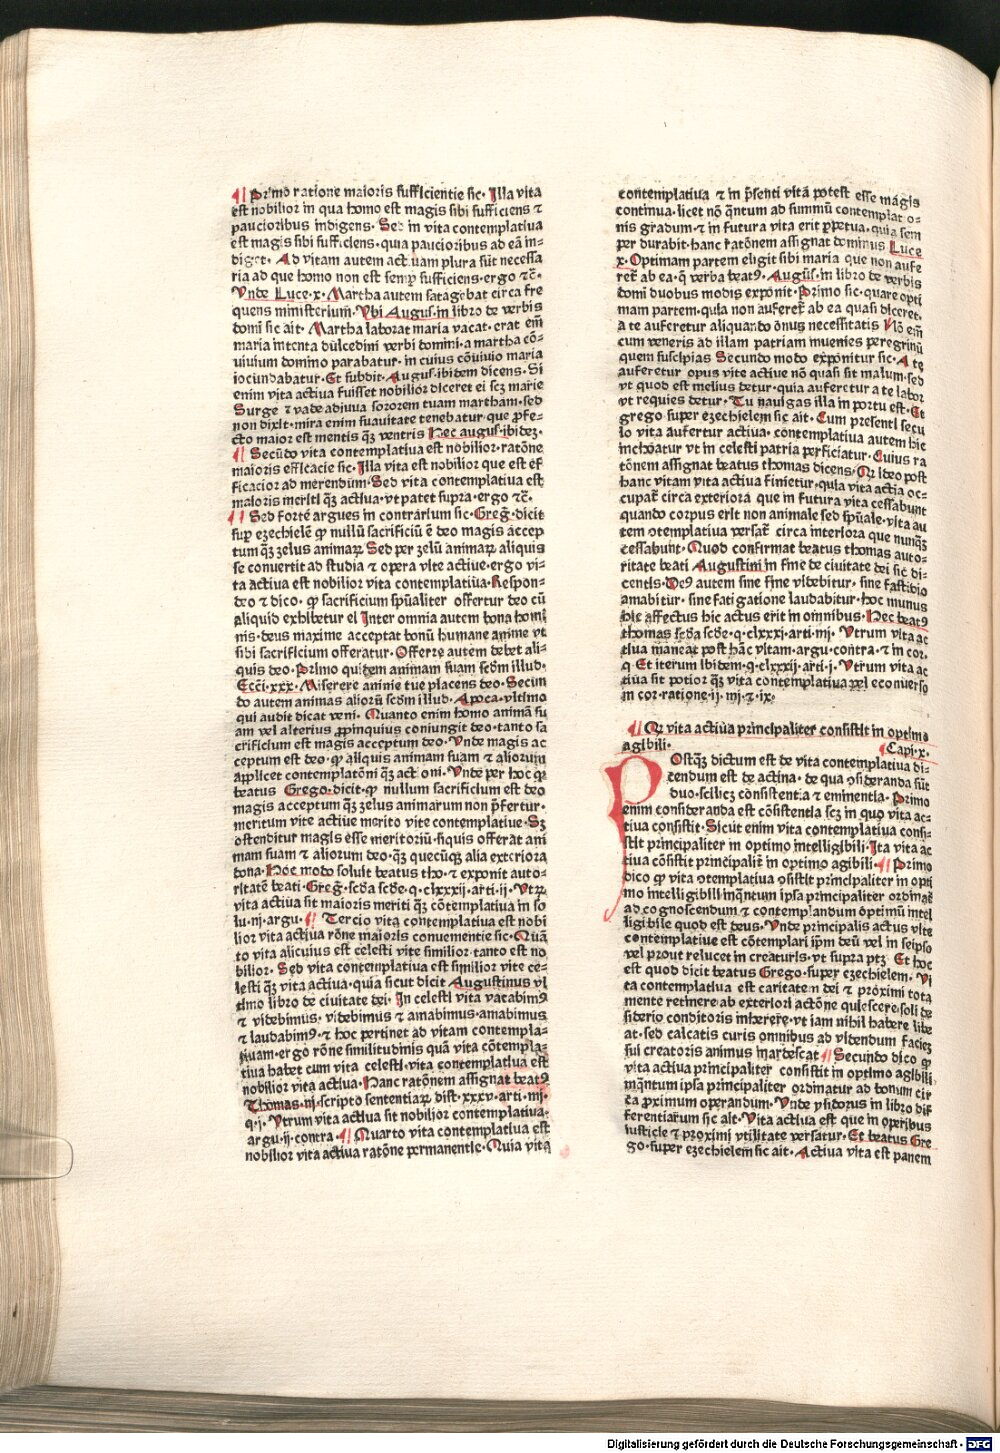 ¶ Primo ratione maioris sufficientie sic· Illa vita
est nobilior in qua homo est magis sibi sufficiens ⁊
paucioribus indigens· Sed in vita contemplatiua
est magis sibi sufficiens· quia paucioribus ad eā in-
diget· Ad vitam autem actiuam plura sūt necessa
ria ad que homo non est semꝑ sufficiens· ergo ⁊c̄·
Vnde Luce·x· Martha autem satagebat circa fre
quens ministerium· Vbi Augus· in libro de verbis
domī sic ait· Martha laborat maria vacat· erat em̄
maria intenta dulcedini verbi domini· a martha cō-
uiuium domino parabatur· in cuius cōuiuio maria
iocūndabatur· Et subdit· Augus· ibidem dicens· Si
enim vita actiua fuisset nobilior diceret ei scꝫ marie
Surge ⁊ vade adiuua sororem tuam martham· sed
non dixit· mira enim suauitate tenebatur· que ꝓfe-
cto maior est mentis qꝫ ventris Hec augus· ibideꝫ·
¶ Secūdo vita contemplatiua est nobilior· ratōne
maioris efficacie sic· Illa vita est nobilior que est ef
ficacior ad merendum· Sed vita contemplatiua est
maioris meriti qꝫ actiua· vt patet supra· ergo ⁊c̄·
¶ Sed forte argues in contrarium sic· Greg̃· dicit
suꝑ ezechielē ꝙ nullū sacrificiū ē deo magis accep
tum qꝫ zelus animaꝝ Sed per zelū animaꝝ aliquis
se conuertit ad studia ⁊ opera vite actiue· ergo vi-
ta actiua est nobilior vita contemplatiua· Respon-
deo ⁊ dico· ꝙ sacrificium spūaliter offertur deo cū
aliquid exhibetur ei Inter omnia autem bona homi
nis· deus maxime acceptat bonū humane anime vt
sibi sacrificium offeratur· Offerre autem debet ali-
quis deo· Primo quidem animam suam scdm illud·
Ecci·xxx· Miserere anime tue placens deo· Secun
do autem animas alioꝝ scdm illud· Apoca· vltimo
qui audit dicat veni· Quanto enim homo animā su
am vel alterius ꝓpinquius coniungit deo· tanto sa
crificium est magis acceptum deo· Vnde magis ac
ceptum est deo· ꝙ aliquis animam suam ⁊ aliorum
applicet contemplatōni qꝫ actioni· Vnde per hoc ꝙ
beatus Grego· dicit· ꝙ nullum sacrificium est deo
magis acceptum qꝫ zelus animarum non p̄fertur·
meritum vite actiue merito vite contemplatiue· Sꝫ
ostenditur magis esse meritoriū· siquis offerat ani
mam suam ⁊ aliorum deo· qꝫ quecūqꝫ alia exteriora
dona· Hoc modo soluit beatus tho· ⁊ exponit auto-
ritatē beati· Greg̃· scda scde· q·clxxxij· arti·ij· Vtꝝ
vita actiua sit maioris meriti qꝫ cōtemplatiua in so
lu·iij· argu· ¶ Tercio vita contemplatiua est nobi
lior vita actiua rōne maioris conuenientie sic· Quā
to vita alicuius est celesti vite similior· tanto est no
bilior· Sed vita contemplatiua est similior vite ce-
lesti qꝫ vita actiua· quia sicut dicit Augustinus vl
timo libro de ciuitate dei· In celesti vita vacabim⁹
⁊ videbimus· videbimus ⁊ amabimus· amabimus
⁊ laudabim⁹· ⁊ hoc pertinet ad vitam contempla-
tiuam· ergo rōne similitudinis quā vita cōtempla-
tiua habet cum vita celesti· vita contemplatiua est
nobilior vita actiua· Hanc ratōnem assignat beat⁹
Thomas·iij· scripto sententiaꝝ dist·xxxv· arti·iij·
q·j· Vtrum vita actiua sit nobilior contemplatiua·
argu·ij· contra· ¶ Quarto vita contemplatiua est
nobilior vita actiua ratōne permanentie· Quia vita
contemplatiua ⁊ in p̄senti vitā potest esse magis
continua· licet nō q̄ntum ad summū contemplatio-
nis gradum· ⁊ in futura vita erit ꝑpetua· quia sem
per durabit· hanc ratōnem assignat dominus Luce
x· Optimam partem eligit sibi maria que non aufe
ret̄ ab ea· q̄ verba beat⁹· Augus̄· in libro de verbis
domī duobus modis exponit· Primo sic· quare opti
mam partem· quia non auferet̄ ab ea quasi diceret·
a te auferetur aliquando on⁹us necessitatis Nō em̄
cum veneris ad illam patriam inuenies peregrinū
quem suscipias Secundo modo exponitur sic· A te
auferetur opus vite actiue nō quasi sit malum· sed
vt quod est melius detur· quia auferetur a te labor
vt requies detur· Tu nauigas illa in portu est· Et
grego super ezechielem sic ait· Cum presenti secu
lo vita aufertur actiua· contemplatiua autem hic
inchoatur vt in celesti patria perficiatur· Cuius ra
tōnem assignat beatus thomas dicens· Qr ideo post
hanc vitam vita actiua finietur· quia vita actia oc-
cupat̄ circa exteriora que in futura vita cessabunt
quando corpus erit non animale sed spūale· vita au
tem ꝯtemplatiua versat̄ circa interiora que nunqꝫ
cessabunt· Quod confirmat beatus thomas auto-
ritate beati Augustini in fine de ciuitate dei sic di-
centis· De⁹ autem sine fine videbitur· sine fastidio
amabitur· sine fatigatione laudabitur· hoc munus
hic affectus hic actus erit in omnibus· Hec beat⁹
thomas scda scde· q·clxxxj· arti·iiij· Vtrum vita ac
tiua maneat post hāc vitam· argu· contra· ⁊ in cor·
q· Et iterum ibidem· q·clxxxij· arti·j· Vtrum vita ac
tiua sit potior qꝫ vita contemplatiua vel econuerso
in cor· ratione·ij· iij· ⁊ ix·
¶ Qr vita actiua principaliter consistit in optimo
agibili· ¶ Capi·x·
POstqꝫ dictum est de vita contemplatiua di-
cendum est de actiua· de qua ꝯsideranda sūt
duo· scilicꝫ consistentia ⁊ eminentia· Primo
enim consideranda est cōsistentia scꝫ in quo vita ac-
tiua consistit· Sicut enim vita contemplatiua consi-
stit principaliter in optimo intelligibili· Ita vita ac
tiua cōsistit principalit̄ in optimo agibili· ¶ Primo
dico ꝙ vita ꝯtemplatiua ꝯsistit principaliter in opti
mo intelligibili inq̄ntum ipsa principaliter ordinat̄
ad cognoscendum ⁊ contemplandum optimū intel
ligibile quod est deus· Vnde principalis actus vite
contemplatiue est cōtemplari ip̄m deū vel in seipso
vel prout relucet in creaturis· vt supra ptꝫ Et hoc
est quod dicit beatus Grego· super ezechielem· Vi
ta contemplatiua est caritatem dei ⁊ proximi tota
mente retinere· ab exteriori actōne quiescere· soli de
siderio conditoris inherere· vt iam nihil habere libe
at· sed calcatis curis omnibus ad videndum facieꝫ
sui creatoris animus inardescat ¶ Secundo dico ꝙ
vita actiua principaliter consistit in optimo agibili
inq̄ntum ipsa principaliter ordinatur ad bonum cir
ca proximum operandum· Vnde ysidorus in libro dif
ferentiarum sic ait· Vita actiua est que in operibus
iusticie ⁊ proximi vtilitate versatur· Et beatus Gre
go· super ezechielem sic ait· Actiua vita est panem
Digitalisierung gefördert durch die Deutsche Forschungsgemeinschaft - DFG